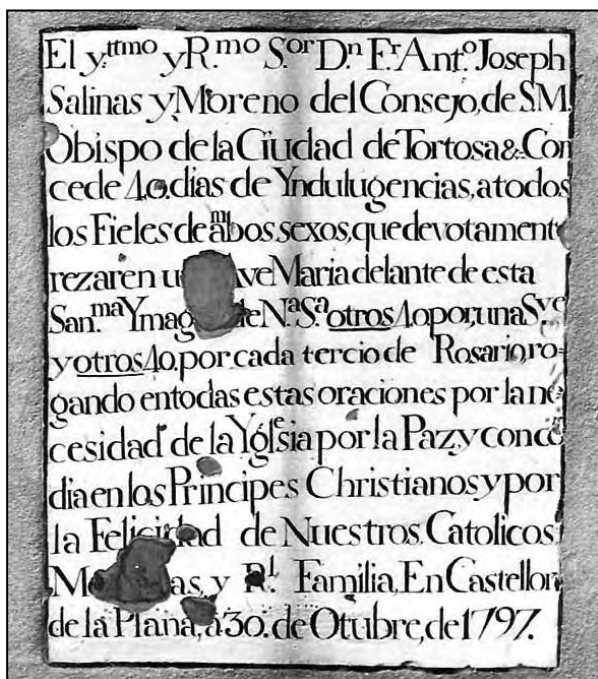 El y.ttmo y R.mo S.or D.n F.r Ant.o Joseph
Salinas y Moreno del Consejo, de S.M.
Obispo de la Ciudad de Tortosa &. Con
cede 40. dias de Yndulugencias, a todos
los Fieles de ambos sexos, que devotamente
rezaren Maria delante de esta
San.ma de N.a S.a otros 40 por, una S.ve
y otros 40. por cada tercio de Rosario, ro=
gando en todas estas oraciones por la ne
cesidad de la Yglesia por la Paz, y conco
dia en los Principes Christianos y por
la Felicidad de Nuestros Catolicos
y R.l Familia, En Castellon
de la Plana, a 30. de Otubre, de 1797.